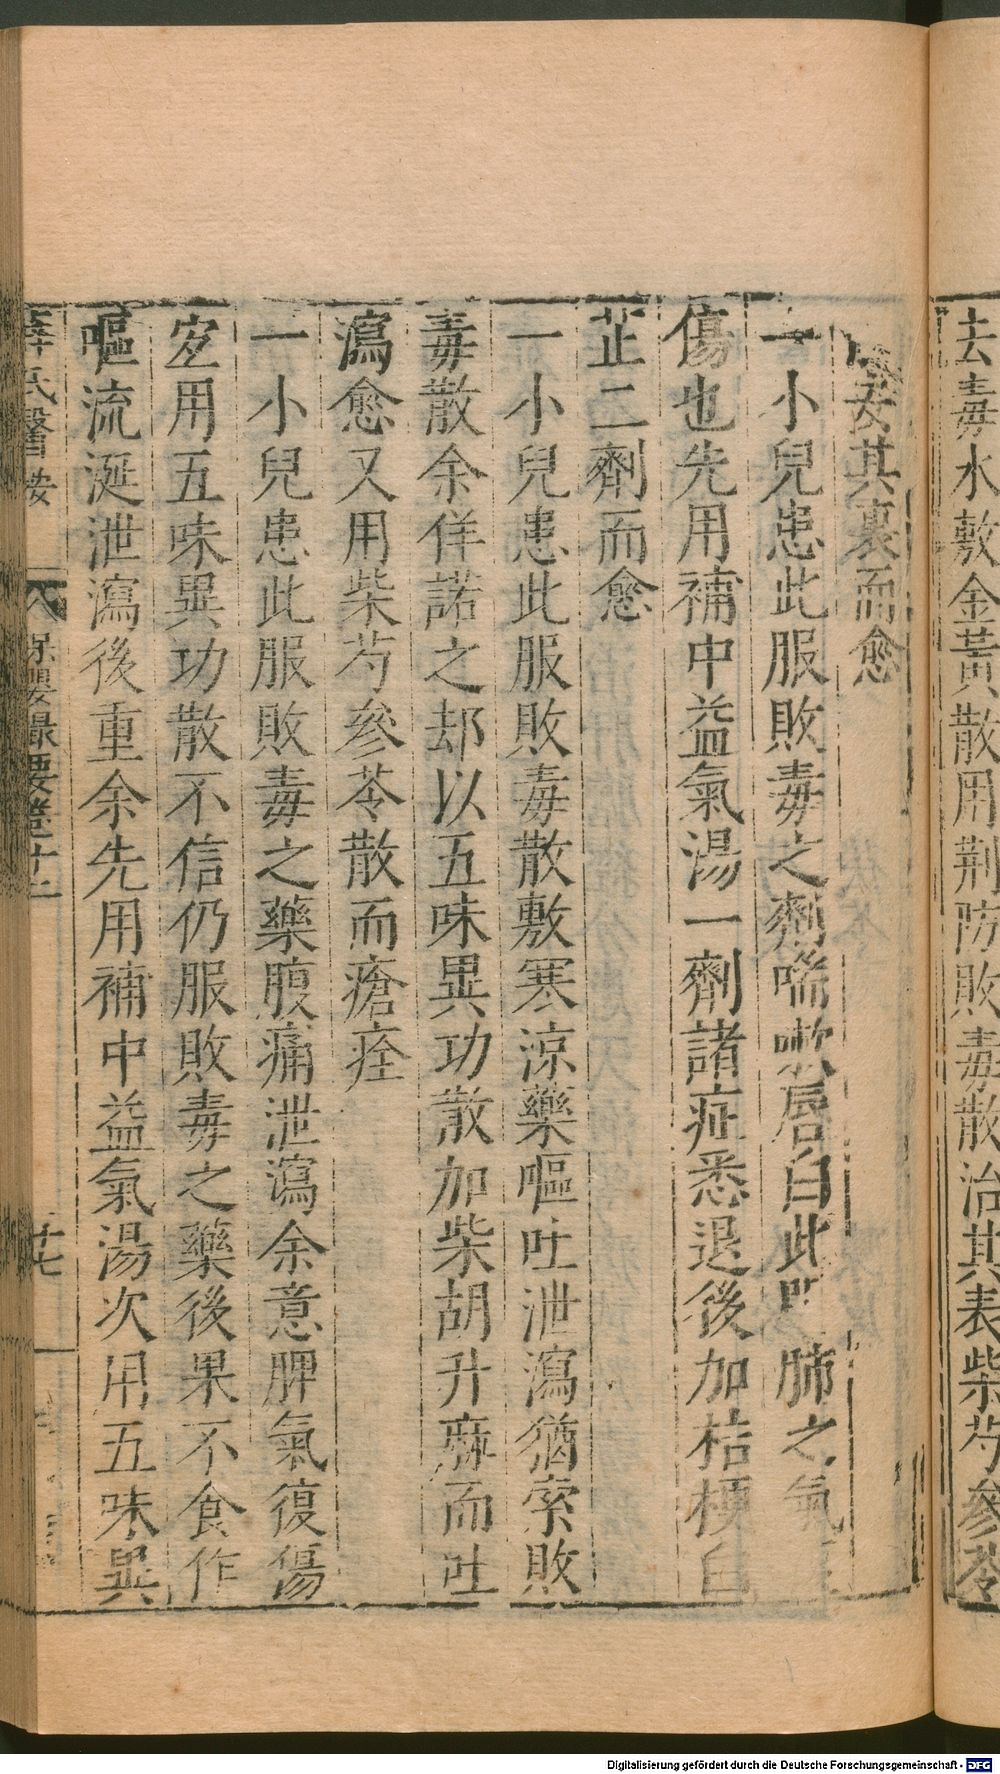 去毒水敷金黃散用荆防敗毒散治其表柴芍參苓
安其裏而愈
一小兒患此服敗毒之劑喘嗽唇白此脾肺之氣
傷也先用補中益氣湯一劑諸症悉退後加桔梗白
芷二劑而愈
一小兒患此服敗毒散敷寒涼藥嘔吐泄瀉猶索敗
毒散余佯諾之却以五味異功散加柴胡升麻而吐
瀉愈又用柴芍參苓散而瘡痊
一小兒患此服敗毒之藥腹痛泄瀉余意脾氣復傷
宜用五味異功散不信仍服敗毒之藥後果不食作
嘔流涎泄瀉後重余先用補中益氣湯次用五味異
薛氏醫按
八
保嬰撮要卷十二
十七
Digitalisierung gefördert durch die Deutsche Forschungsgemeinschaft - DFG